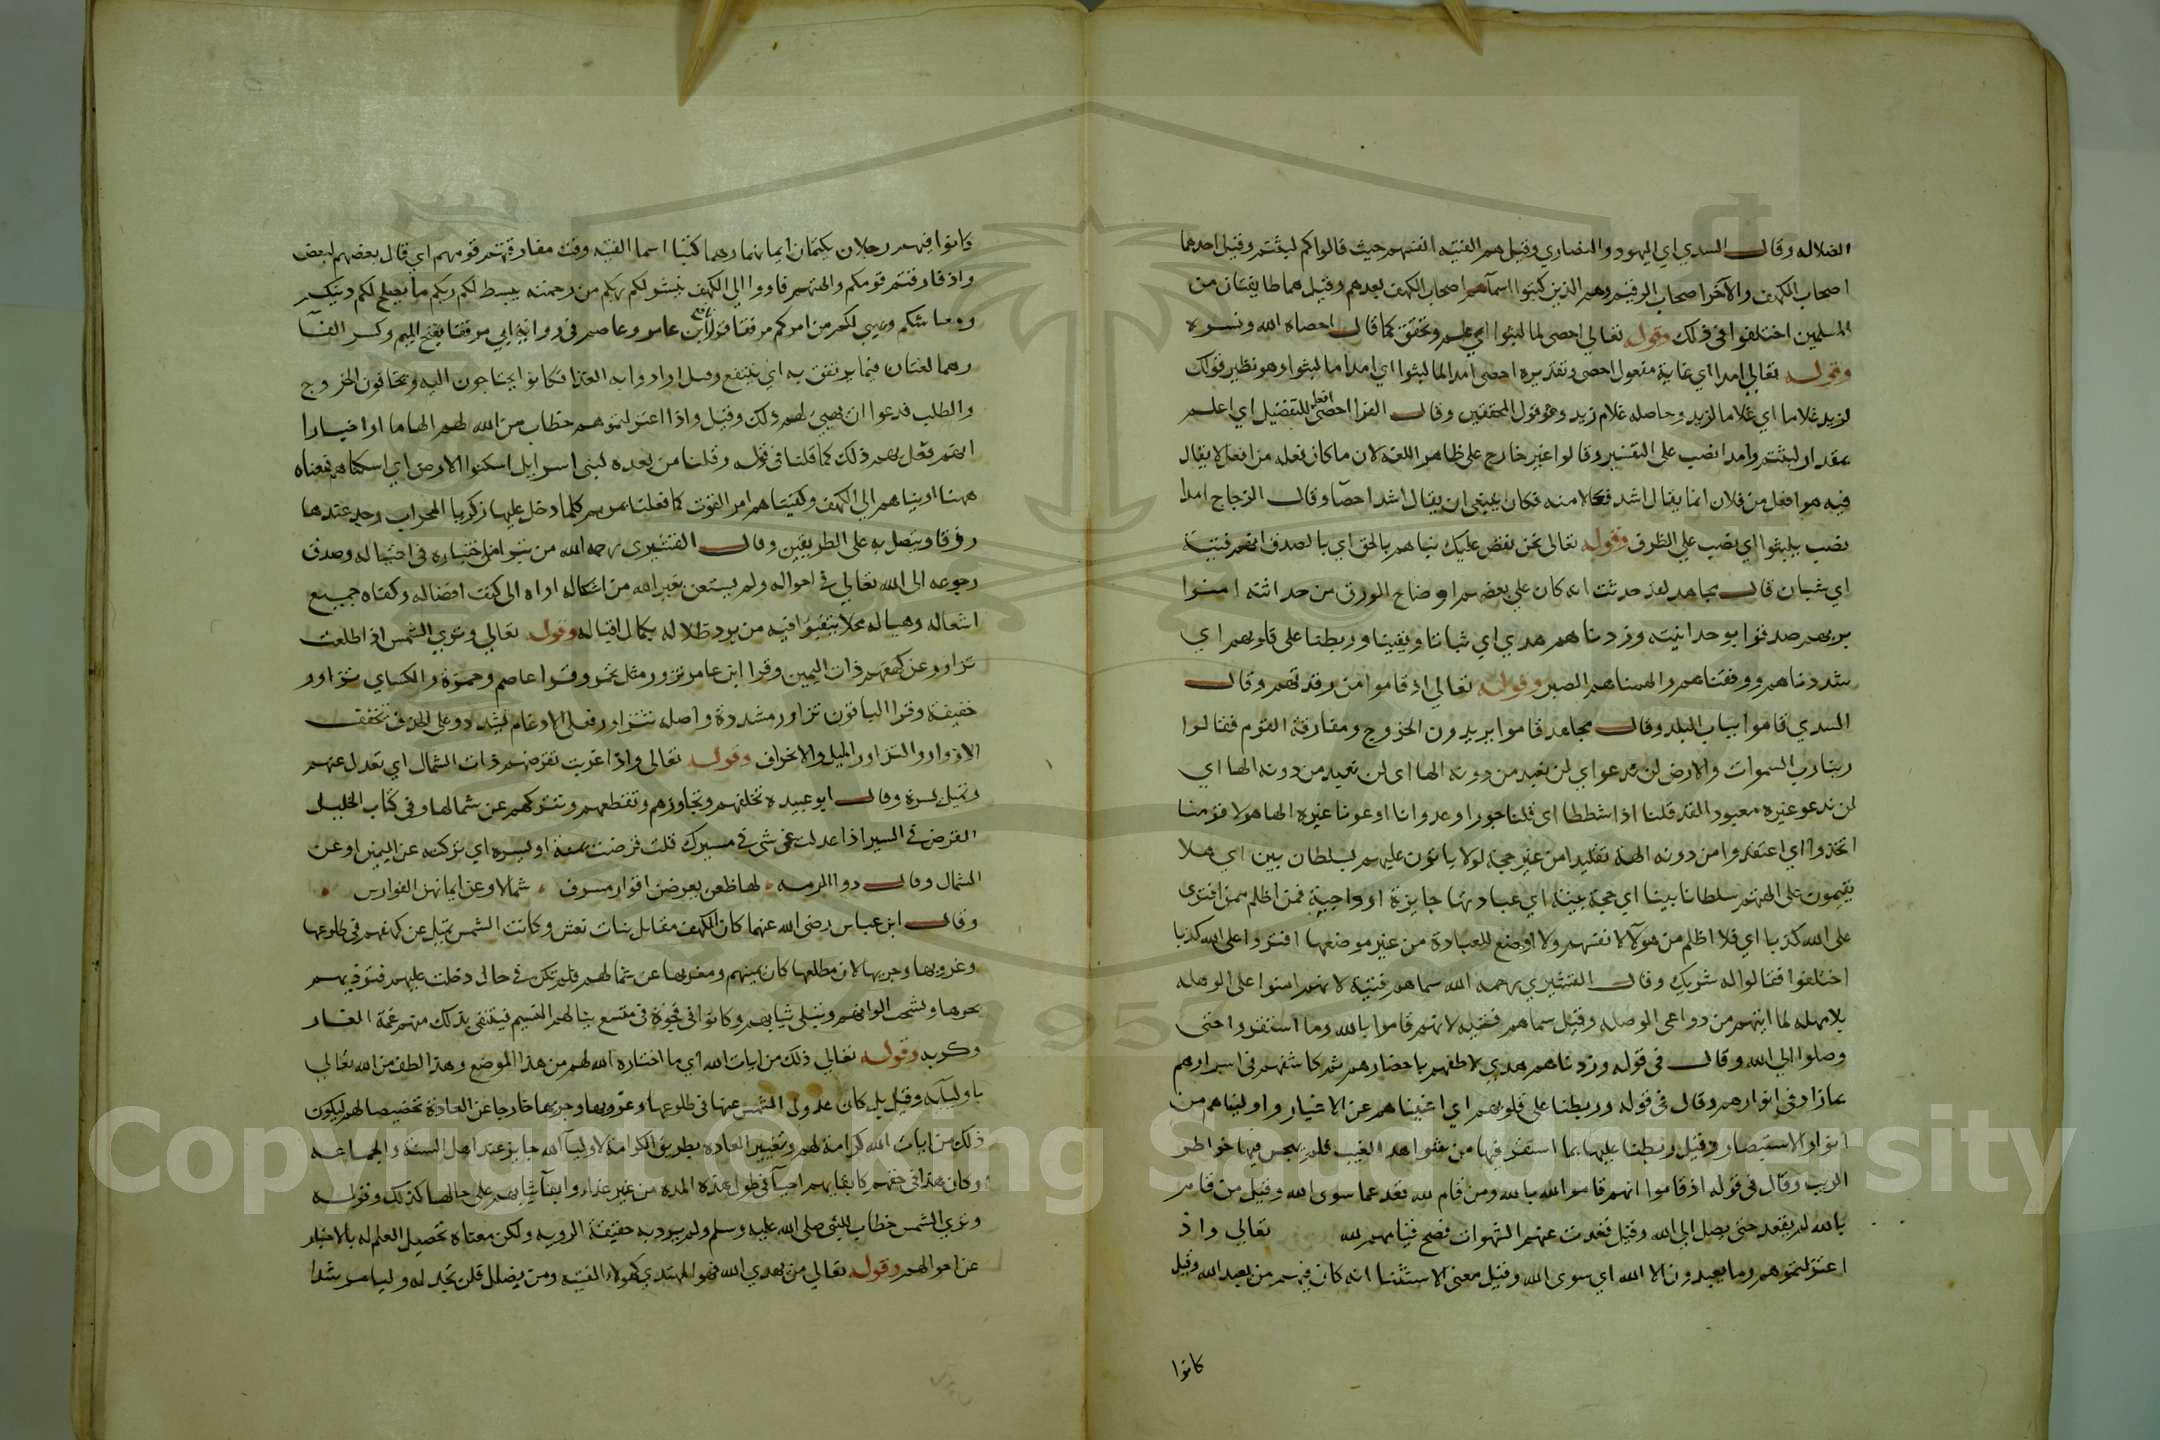 الضلاله وقال السدي اي اليهود والنصاري وقيل هم الفتيه انفسهم حيث قالوا كم لبثتم وقيل احدهما
اصحاب الكهف والآخر اصحاب الرقيم وهم الذين كتبوا اسمآهم اصحاب الكهف بعدهم وقيل هما طايفتان من
المسلمين اختلفوا في ذلك وقوله تعالي احصي لما لبثوا اي علم وتحقق كما قال احصاه الله ونسوه
وقوله تعالي امدا اي غاية مفعول احصي وتقديره احصي امدا لما لبثوا اي امدا ما لبثوا وهو نظير قولك
لزيد غلاما اي غلاما لزيد وحاصله غلام زيد وهو قول المحققين وقال الفرا احصي افعل للتفضيل اي اعلم
بمقدار لبثتم وامدا نصب علي التفسير وقالوا غير خارج علي ظاهر اللغه لان ما كان فعله من افعل لا يقال
فيه هو افعل من فلان انما يقال اشد فعلا منه فكان ينبغي ان يقال اشد احصآ وقال الزجاج امدا
نصب بلبثوا اي نصب علي الظرف وقوله تعالي نحن نقص عليك نباهم بالحق اي بالصدق انهم فتية
اي شبان قال مجاهد لقد حدثت انه كان علي بعضهم اوضاح الورق من حداثته امنوا
بربهم صدقوا بوحدانيته وزدناهم هدي اي ثباتا ويقينا وربطنا علي قلوبهم اي
شددناهم ووفقناهم والهمناهم الصبر وقوله تعالي اذ قاموا من رقدتهم وقال
السدي قاموا بباب البلد وقال مجاهد قاموا يريدون الخروج ومفارقة القوم فقالوا
ربنا رب السموات والارض لن ندعو اي لن نعبد من دونه الها اي لن نعبد من دونه الها اي
لن ندعو غيره معبودا لقد قلنا اذا شططا اي قلنا جورا وعدوانا ان دعونا غيره الها هولا قومنا
اتخذوا اي اعتقدوا من دونه الهة تقليدا من غير حجة لولا ياتون عليهم بسلطان بين اي هلا
يقيمون علي الهتهم سلطانا بينا اي حجة بينة اي عبادتها جايزة او واجبة فمن اظلم ممن افتري
علي الله كذبا اي فلا اظلم من هولآ لانفسهم ولا اوضع للعبادة من غير موضعها افتروا علي الله كذبا
اختلقوا فقالوا له شريك وقال القشيري رحمه الله سماهم فتية لانهم امنوا علي الوهله
بلا مهله لما اتتهم من دواعي الوصله وقيل سماهم فتيه لانهم قاموا بالله وما استقروا حتي
وصلوا الي الله وقال في قوله وزدناهم هدي لاطفهم باحضارهم ثم كاشفهم في اسرارهم
بما زاد في انوارهم وقال في قوله وربطنا علي قلوبهم اي اغنيناهم عن الاغيار واوليناهم من
انوار الاستبصار وقيل ربطنا عليها بما استقر فيها من شواهد الغيب فلم يهجس فيها خواطر
الريب وقال في قوله اذ قاموا انهم قاموا لله بالله ومن قام لله بعد عما سوي الله وقيل من قام
بالله لم يقعد حتي يصل الي الله وقيل قعدت عنهم الشهوات فصح قيامهم لله تعالي واذ
اعتزلتموهم وما يعبدون الا الله اي سوي الله وقيل معني الاستثنا انه كان فيهم من يعبد الله وقيل
كانوا
كانوا فيهم رجلان يكتمان ايمانهما وهما كتبا اسما الفتيه وقت مفارقتهم قومهم اي قال بعضهم لبعض
واذ فارقتم قومكم والهتهم فاووا الي الكهف ينشر لكم ربكم من رحمته يبسط لكم ربكم ما يصلح لكم دينكم
ومعاشكم ويهيي لكم من امركم مرفقا قرا نافع وابن عامر وعاصم في رواية ابي مرفقا بفتح الميم وكسر الفآ
وهما لغتان فيما يرتفق به اي ينتفع وقيل ارادوا به الغذا فكانوا يحتاجون اليه ويخافون الخروج
والطلب فدعوا ان يهيئ لهم ذلك وقيل واذا اعتزلتموهم خطاب من الله لهم الهاما او اخبارا
انهم فعل بهم ذلك كما قلنا في قوله وقلنا من بعده لبني اسرايل اسكنوا الارض اي اسكناهم فمعناه
ههنا اويناهم الي الكهف وكفيناهم امر القوت كما فعلنا بمريم كلما دخل عليها زكريا المحراب وجد عندها
رزقا ويتصل به علي الطريقين وقال القشيري رحمه الله من تبرا من اختياره في احتياله وصدق
رجوعه الي الله تعالي في احواله ولم يستعن بغير الله من اشكاله اواه الي كنف افضاله وكفاه جميع
اشغاله وهيا له محلا يتفيؤا فيه من برد ظلاله بكمال اقباله وقوله تعالي وتري الشمس اذا طلعت
تزاور عن كهفهم ذات اليمين وقرا ابن عامر تزور مثل تحمر وقرا عاصم وحمزة والكساي تزاور
خفيفة وقرا الباقون تزاور مشددة واصله تتزاور فعلي الادغام يشدد وعلي الحذف تخفف
الازوار والتزاور الميل والانحراف وقوله تعالي واذا غربت تقرضهم ذات الشمال اي تعدل عنهم
وتميل يسرة وقال ابو عبيده تخلفهم وتجاوزهم وتقطعهم وتتركهم عن شمالها وفي كتاب الخليل
القرض في السير اذا عدلت عن شي في مسيرك قلت قرضت يمنة او يسره اي تركته عن اليمين او عن
الشمال وقال ذوا الرمه لها ظعن يعرضن اقواز مسرف شمالا وعن ايمانهن الفوارس
وقال ابن عباس رضي الله عنهما كان الكهف مقابل بنات نعش وكانت الشمس تميل عن كهفهم في طلوعها
وغروبها وجريها لان مطلعها كان يمينهم ومغربها عن شمالهم فلم تكن في حال دخلت عليهم فتوذيهم
بحرها وتشحب الوانهم وتبلي ثيابهم وكانوا في فجوة في متسع ينالهم النسيم فينتفي بذلك عنهم غمة الغار
وكربه وقوله تعالي ذلك من ايات الله اي ما اختاره الله لهم من هذا الموضع وهذا لطف من الله تعالي
باوليآيه وقيل بل كان عدول الشمس عنها في طلوعها وغروبها وجريها خارجا عن العادة تخصيصا لهم ليكون
ذلك من ايات الله كرامة لهم وتغيير العاده بطريق الكرامة لاوليآ الله جايز عند اهل السنة والجماعه
وكان هذا في حقهم كابقايهم احيآ في طول هذه المده من غير غذاء وابقآ ثيابهم علي حالها كذلك وقوله
وتري الشمس خطاب للنبي صلي الله عليه وسلم ولم يرد به حقيقة الرويه ولكن معناه تحصيل العلم له بالاخبار
عن احوالهم وقوله تعالي من يهدي الله فهو المهتدي كهولاء الفتيه ومن يضلل فلن تجد له وليا مرشدا
Copyright © King Saud University